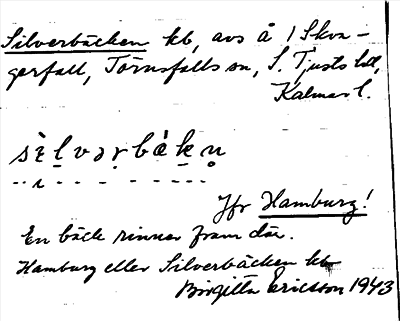 Silverbäcken kb, avs å i Skva-
gerfall, Törnsfalls sn, S. Tjusts hd,
Kalmar l.
sìlvərbàkn
Jfr Hamburg!
En bäck rinner fram där.
Hamburg eller Silverbäcken kb
Birgitta Ericsson 1943